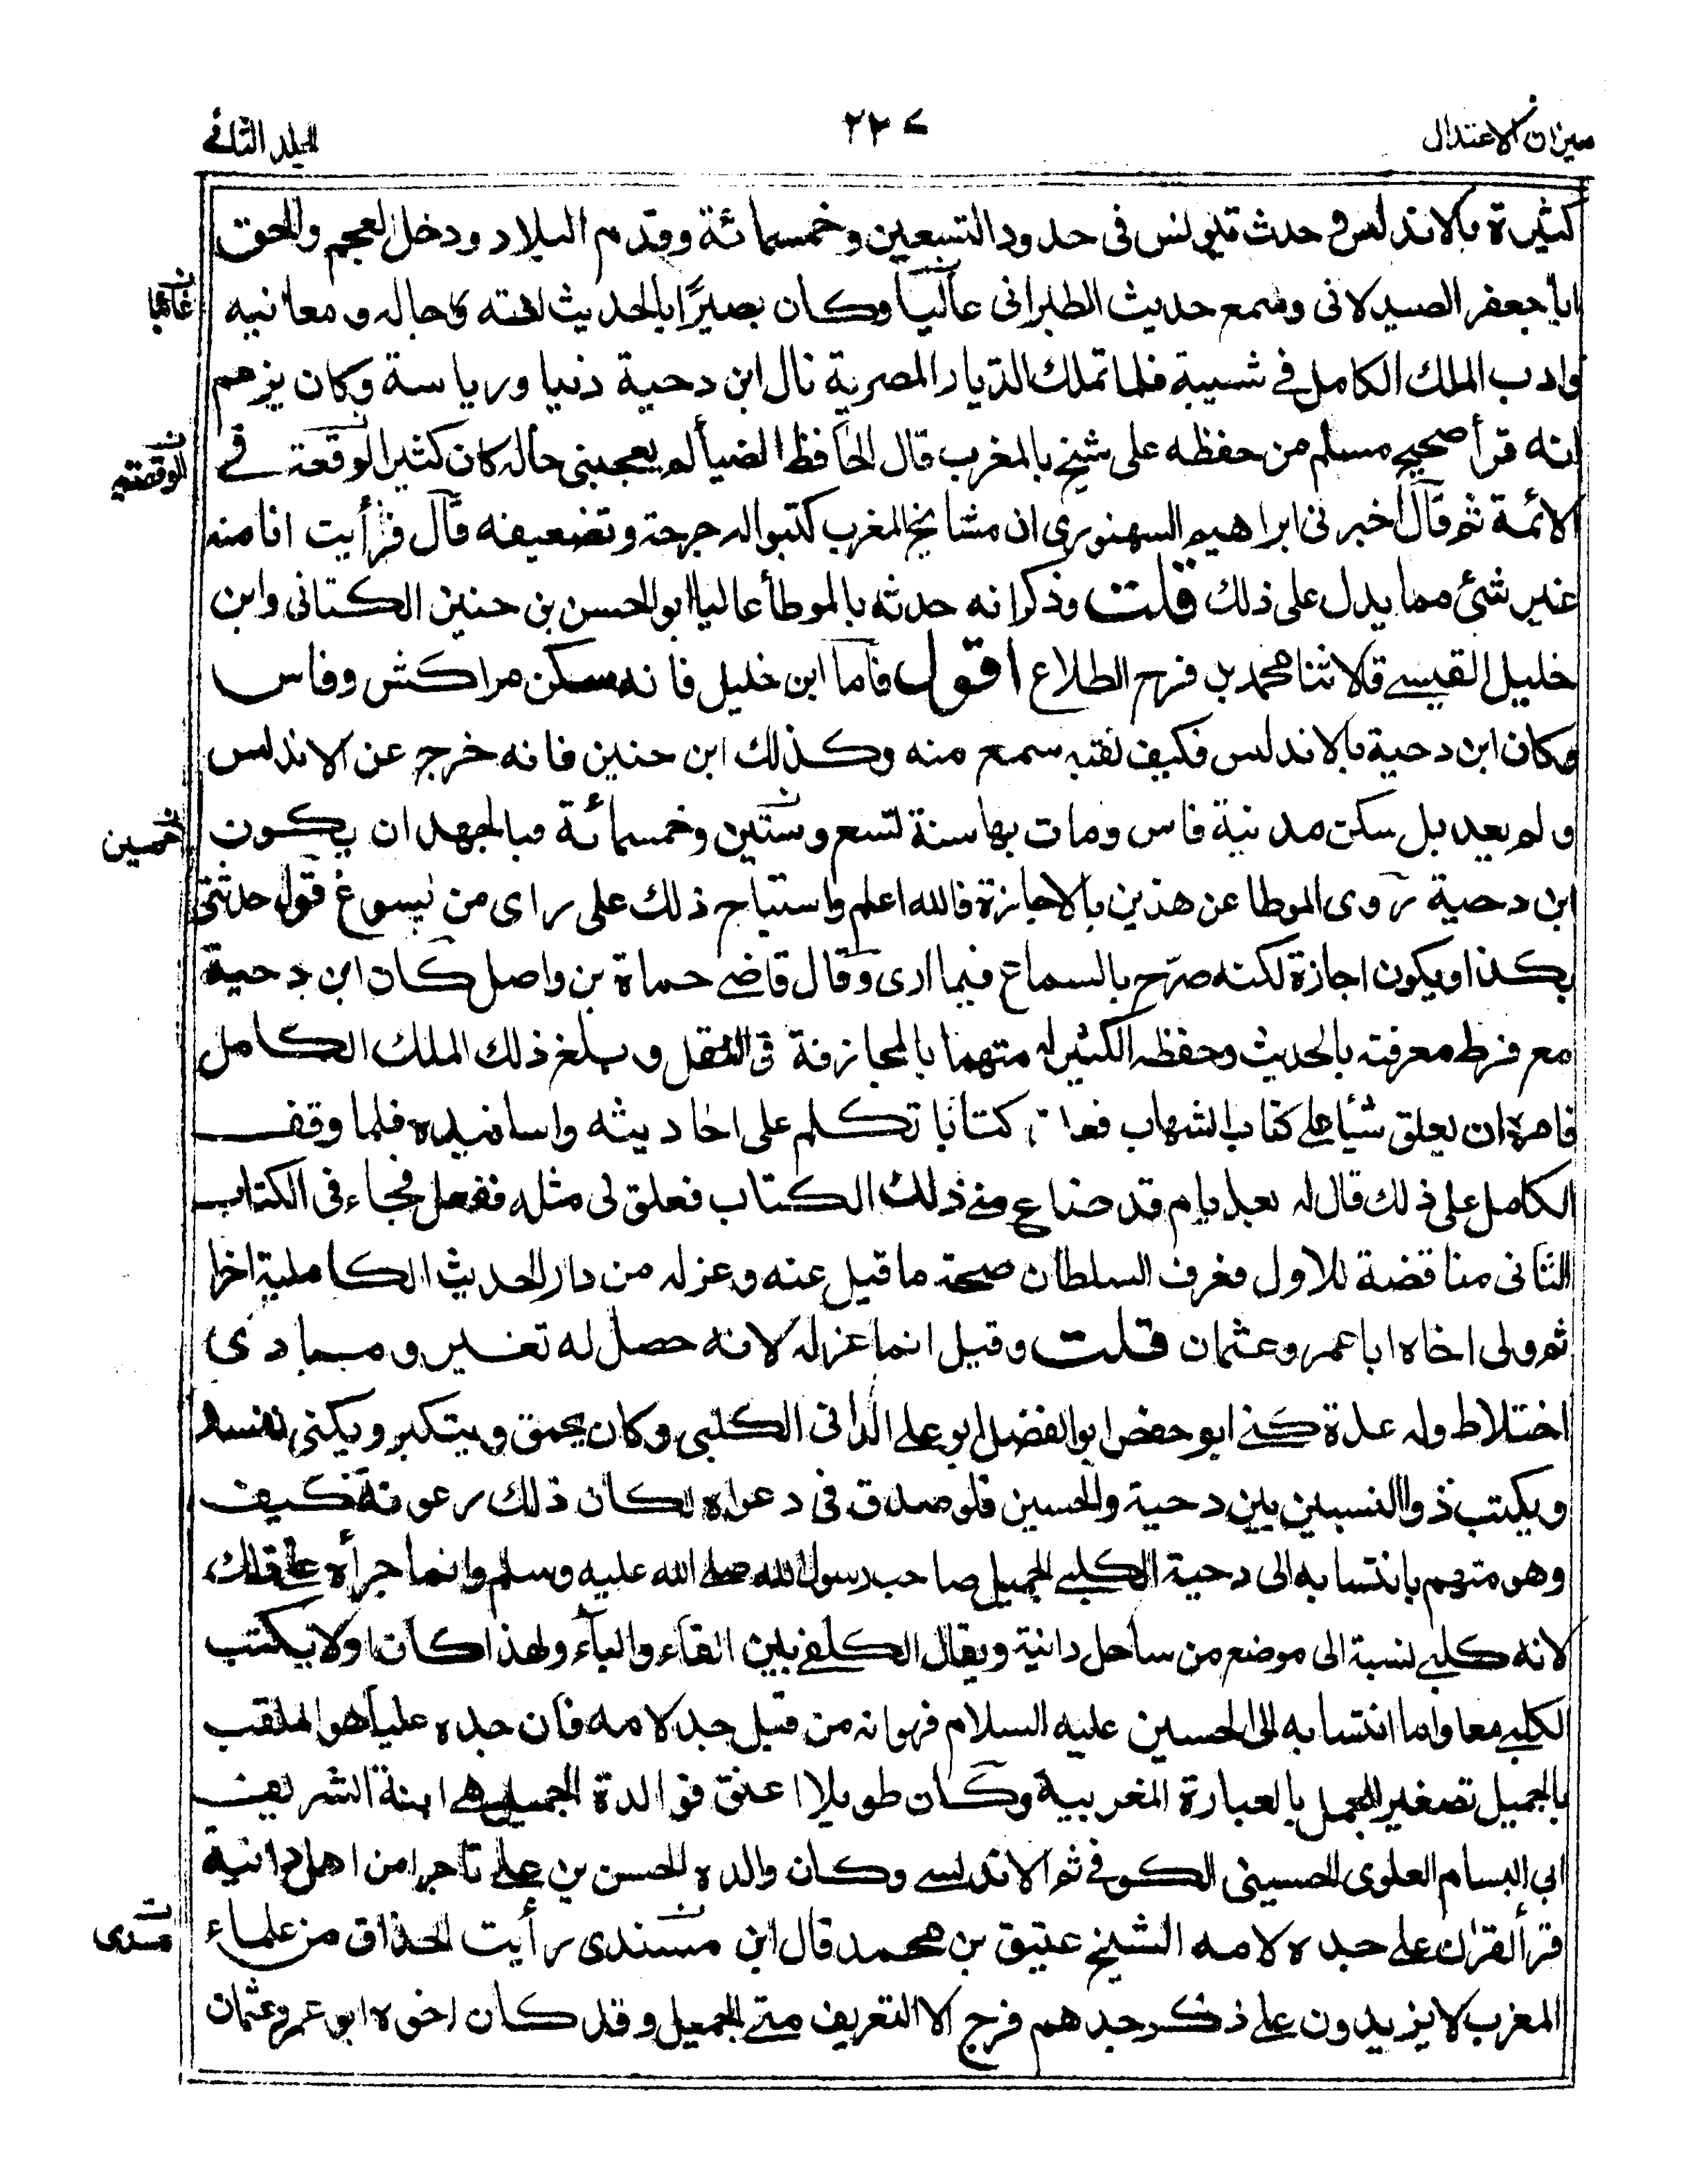 ميزان الاعتدال
٢٢٧
المجلد الثانى
كثيرة بالاندلس و حدث بتونس فى حدود التسعين وخمسمائة وقدم البلاد ودخل العجم ولحق
ابا جعفر الصيدلانى وسمع حديث الطبرانى عاليا وكان بصيرا بالحديث لغته و حاله و معانيه
وادب الملك الكامل فى شبيبة فلما تملك الديار المصرية نال ابن دحية دنيا ورياسة وكان يزعم
انه قرأ صحيح مسلم من حفظه على شيخ بالمغرب قال الحافظ الضيأ لم يعجبنى حاله كان كثير الوقعة فى
الوقيعة
الائمة ثم قال أخبرنى ابراهيم السهنورى ان مشايخ المغرب كتبوا له جرحه وتضعيفه قال فرأيت انا منه
غير شئ مما يدل على ذلك قلت وذكر انه حدثه بالموطأ عاليا ابو الحسن بن حنين الكتانى وابن
خليل القيسى قالا ثنا محمد بن فرج الطلاع اقول فاما ابن خليل فانه سكن مراكش وفاس
وكان ابن دحية بالاندلس فكيف لقيه سمع منه وكذلك ابن حنين فانه خرج عن الاندلس
ولم يعد بل سكن مدينة فاس ومات بها سنة تسع وستين وخمسمائة فبالجهد ان يكون
خمسين
ابن دحية روى الموطا عن هذين بالاجازة فالله اعلم واستباح ذلك على راى من يسوغ قول حدثنى
بكذا ويكون اجازة لكنه صرّح بالسماع فيما ارى وقال قاضى حماة بن واصل كان ابن دحية
مع فرط معرفته بالحديث وحفظه الكثير له متهما بالمجازفة فى النقل وبلغ ذلك الملك الكامل
فامره ان يعلق شيأ على كتاب الشهاب كتابا تكلم على احاديثه واسانيده فلما وقف
الكامل على ذلك قال له بعد ايام قد ضاع منى ذلك الكتاب فعلق لى مثله ففعل فجاء فى الكتاب
الثانى مناقضة للاول فعرف السلطان صحة ما قيل عنه وعزله من دار الحديث الكاملية اخرا
ثم ولى اخاه ابا عمرو عثمان قلت وقيل انما عزله لانه حصل له تغير ومبادى
اختلاط وله عدة كنى ابو حفص ابو الفضل ابو على الدانى الكلبى وكان يحمق ويتكبر ويكنى نفسه
ويكتب ذو النسبين بين دحية والحسين فلو صدق فى دعواه لكان ذلك رعونة فكيف
وهو متهم بانتسابه الى دحية الكلبى الجميل صاحب رسول الله صلى الله عليه وسلم وانما جرأه على ذلك
لانه كلبى نسبة الى موضع من ساحل دانية ويقال الكلفى بين الفاء والباء ولهذا كان اولا يكتب
الكلبى معا واما انتسابه الى الحسين عليه السلام فهو انه من قبل جد لامه فان جده عليا هو الملقب
بالجميل تصغير الجمل بالعبارة المغربية وكان طويلا اعنق فوالدة الجميل هى ابنة الشريف
ابى البسام العلوى الحسينى الكوفى ثم الاندلسى وكان والده الحسن بن على تاجرا من اهل دانية
قرأ القران على جده لامه الشيخ عتيق بن محمد قال ابن مسندى رأيت الحذاق من علماء
مسدى
المغرب لا يزيدون على ذكر جدهم فرج الا التعريف متى الجميل وقد كان اخوه ابو عمرو عثمان